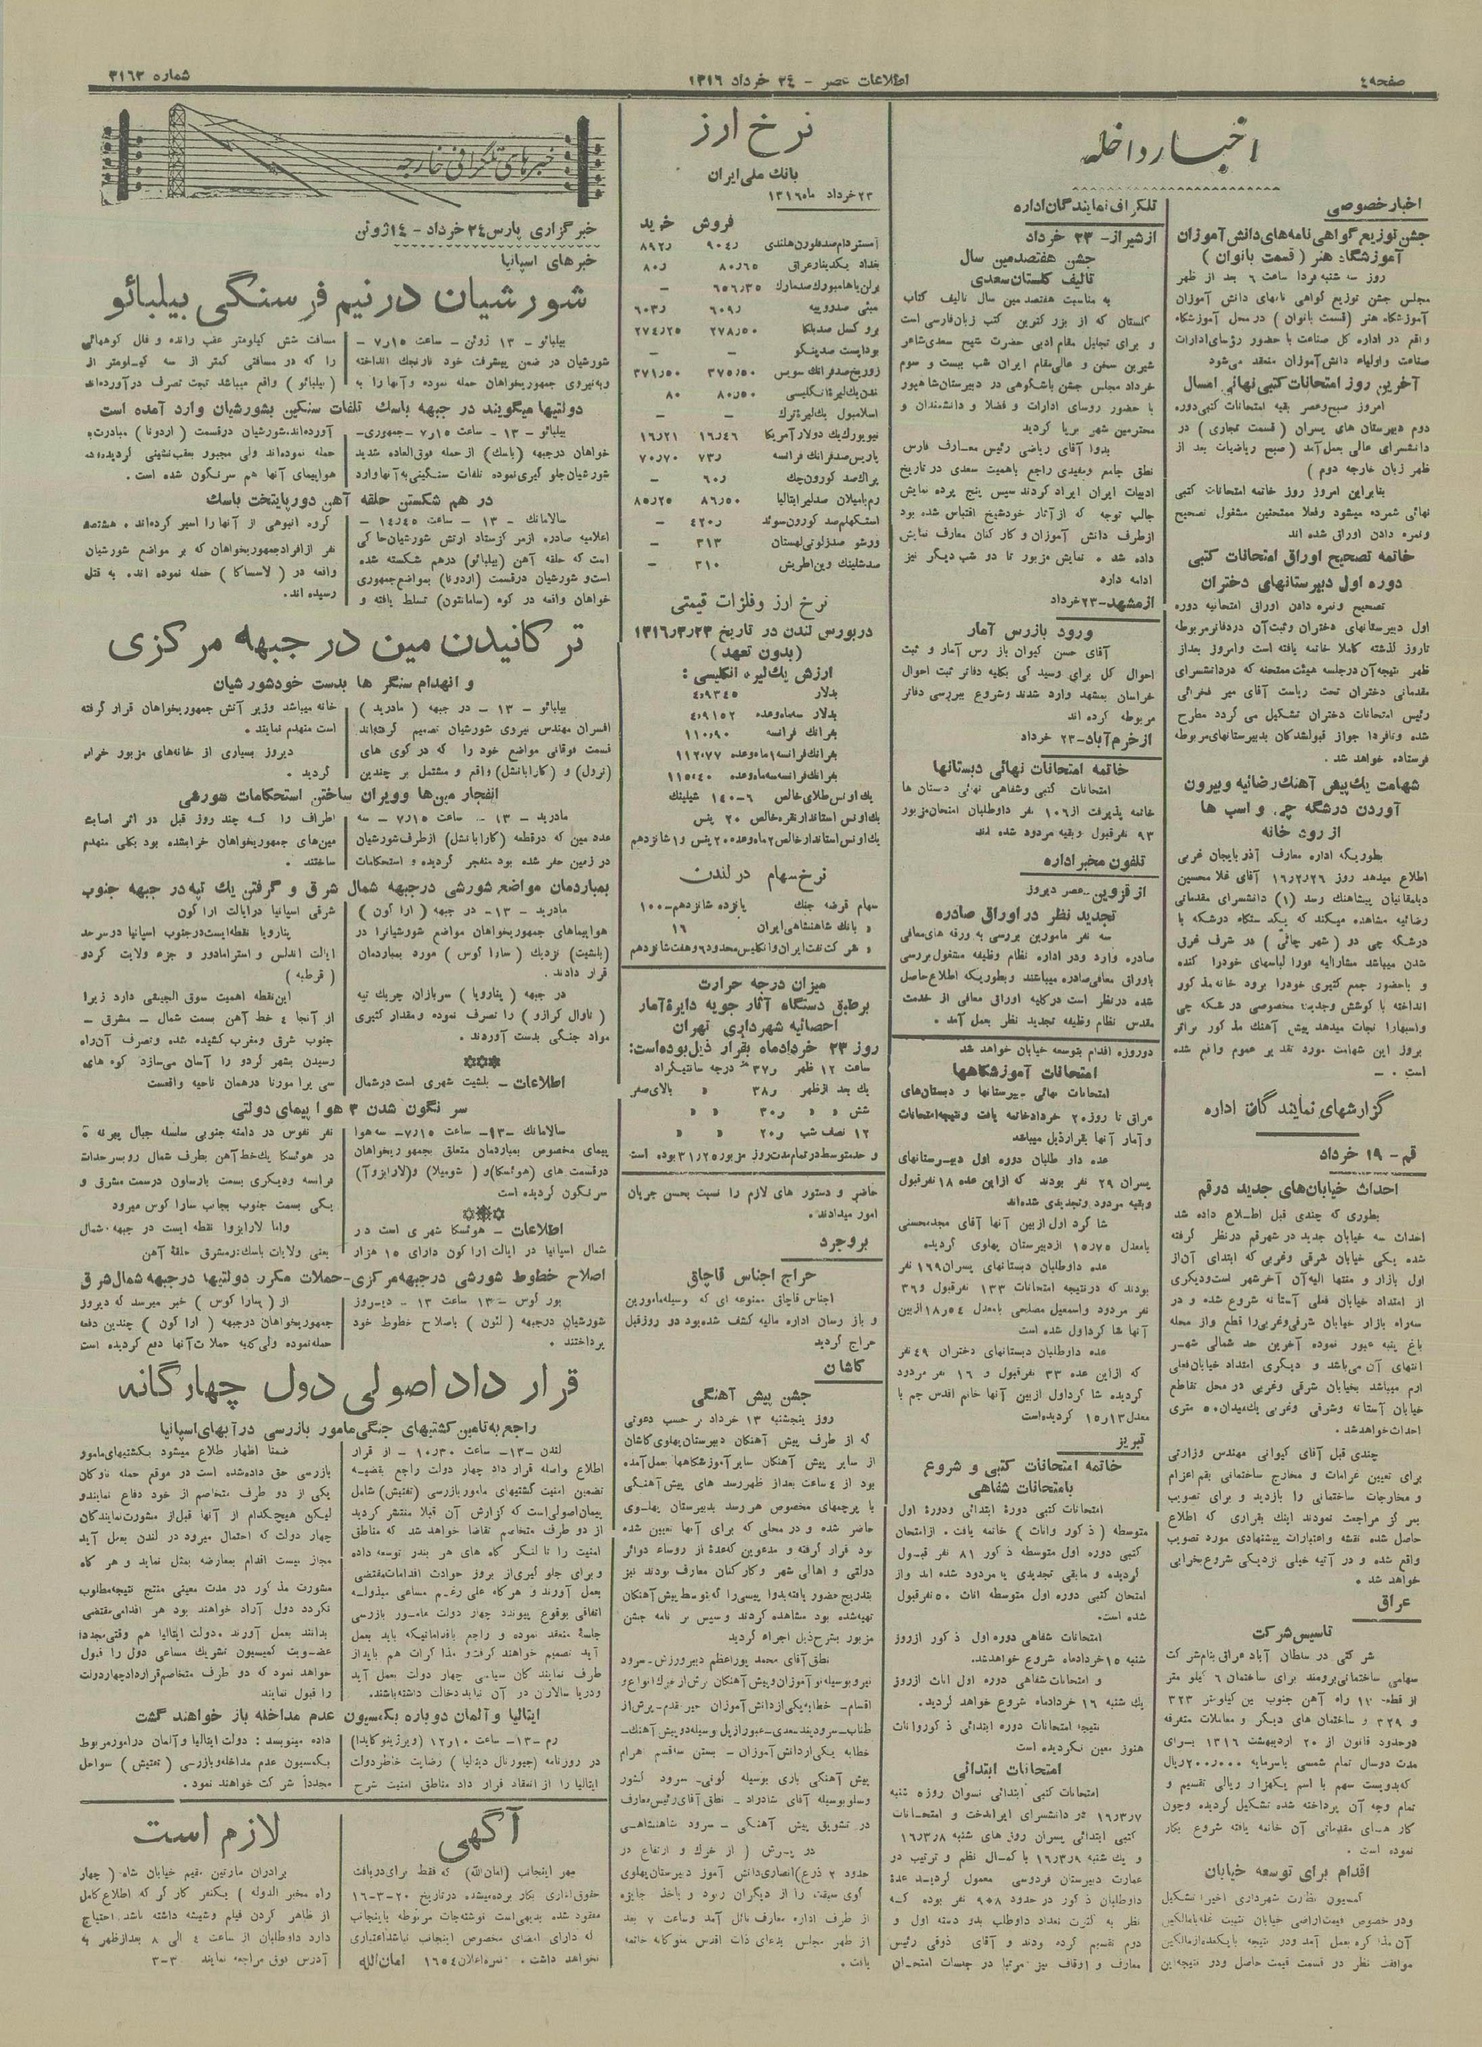 صفحه٤
اطلاعات عصر – ٢٤ خرداد ١٣١٦
شماره ٣١٦٣
اخبار داخله
اخبار خصوصی
جشن توزیع گواهی نامه‌های دانش آموزان
آموزشگاه هنر ( قسمت بانوان )
روز سه شنبه فردا ساعت ٦ بعد از ظهر
مجلس جشن توزیع گواهی نامهای دانش آموزان
آموزشگاه هنر (قسمت بانوان) در محل آموزشگاه
واقع در اداره کل صناعت با حضور رؤسای ادارات
صناعت و اولیاء دانش آموزان منعقد می‌شود
آخرین روز امتحانات کتبی نهائی امسال
امروز صبح و عصر بقیه امتحانات کتبی دوره
دوم دبیرستان های پسران ( قسمت تجاری ) در
دانشسرای عالی بعمل آمد ( صبح ریاضیات بعد از
ظهر زبان خارجه دوم )
بنابراین امروز روز خاتمه امتحانات کتبی
نهائی شمرده میشود و فعلا ممتحنین مشغول تصحیح
و نمره دادن اوراق شده اند
خاتمه تصحیح اوراق امتحانات کتبی
دوره اول دبیرستانهای دختران
تصحیح و نمره دادن اوراق امتحانیه دوره
اول دبیرستانهای دختران و ثبت آن در دفاتر مربوطه
تا روز گذشته کاملا خاتمه یافته است و امروز بعد از
ظهر نتیجه آن در جلسه هیئت ممتحنه که در دانشسرای
مقدماتی دختران تحت ریاست آقای میر فخرائی
رئیس امتحانات دختران تشکیل می گردد مطرح
شده و تا فردا جواز قبولشدگان بدبیرستانهای مربوطه
فرستاده خواهد شد .
شهامت یك پیش آهنگ رضائیه و بیرون
آوردن درشگه چی و اسب ها
از رود خانه
بطوریکه اداره معارف آذربایجان غربی
اطلاع میدهد روز ١٦ر٢ر٢٦ آقای غلامحسین
دیلمقانیان پیشاهنك رسد (١) دانشسرای مقدماتی
رضائیه مشاهده میکند که یك دستگاه درشکه با
درشگه چی در ( شهر چائی ) در شرف غرق
شدن میباشد مشارالیه فورا لباسهای خود را کنده
و با حضور جمع کثیری خود را برود خانه مذکور
انداخته با کوشش و جدیت مخصوصی درشکه چی
و اسبها را نجات میدهد پیش آهنك مذکور براثر
بروز این شهامت مورد تقدیر عموم واقع شده
است . –
گزارشهای نمایندگان اداره
قم – ١٩ خرداد
احداث خیابان‌های جدید در قم
بطوری که چندی قبل اطلاع داده شد
احداث سه خیابان جدید در شهر قم در نظر گرفته
شده یکی خیابان شرقی و غربی که ابتدای آن از
اول بازار و منتها الیه آن آخر شهر است و دیگری
از امتداد خیابان فعلی آستانه شروع شده و در
سه راه بازار خیابان شرقی و غربی را قطع و از محله
باغ پنبه عبور نموده آخرین حد شمالی شهر
انتهای آن می‌باشد و دیگری امتداد خیابان فعلی
ارم میباشد بخیابان شرقی و غربی در محل تقاطع
خیابان آستانه و شرقی و غربی یك میدان ٥٠ متری
احداث خواهد شد .
چندی قبل آقای کیوانی مهندس وزارتی
برای تعیین غرامات و مخارج ساختمانی بقم اعزام
و مخارجات ساختمانی را بازدید و برای تصویب
بمرکز مراجعت نمودند اینك بقراری که اطلاع
حاصل شده نقشه و اعتبارات پیشنهادی مورد تصویب
واقع شده و در آتیه خیلی نزدیکی شروع بخرابی
خواهد شد .
عراق
تاسیس شرکت
شرکتی در سلطان آباد عراق بنام شرکت
سهامی ساختمانی برومند برای ساختمان ٦ کیلو متر
از قطعه ١١ راه آهن جنوب بین کیلومتر ٣٢٣
و ٣٢٩ و ساختمان های دیگر و معاملات متفرقه
در حدود قانون از ٢٠ اردیبهشت ١٣١٦ برای
مدت دو سال تمام شمسی با سرمایه ٢٠٠٠٠٠ ریال
که بدویست سهم با اسم یکهزار ریالی تقسیم و
تمام وجه آن پرداخته شده تشکیل گردیده و چون
کار های مقدماتی آن خاتمه یافته شروع بکار
نموده است .
اقدام برای توسعه خیابان
کمیسیون نظارت شهرداری اخیرا تشکیل
و در خصوص قیمت اراضی خیابان
آن مذاکره بعمل آمد و در نتیجه با یکعده از مالکین
موافقت نظر در قسمت قیمت حاصل و در نتیجه این
تلگراف نمایندگان اداره
از شیراز – ٢٣ خرداد
جشن هفتصدمین سال
تالیف گلستان سعدی
به مناسبت هفتصد مین سال تالیف کتاب
گلستان که از بزرگترین کتب زبان فارسی است
و برای تجلیل مقام ادبی حضرت شیخ سعدی شاعر
شیرین سخن و عالی مقام ایران شب بیست و سوم
خرداد مجلس جشن باشگوهی در دبیرستان شاهپور
با حضور روسای ادارات و فضلا و دانشمندان و
محترمین شهر برپا گردید
بدوا آقای ریاضی رئیس معارف فارس
نطق جامع و مفیدی راجع باهمیت سعدی در تاریخ
ادبیات ایران ایراد کردند سپس پنج پرده نمایش
جالب توجه که از آثار خود شیخ اقتباس شده بود
از طرف دانش آموزان و کارکنان معارف نمایش
داده شد . نمایش مزبور تا دو شب دیگر نیز
ادامه دارد
از مشهد – ٢٣ خرداد
ورود بازرس آمار
آقای حسن کیوان بازرس آمار و ثبت
احوال کل برای رسیدگی بکلیه دفاتر ثبت احوال
خراسان بمشهد وارد شدند و شروع ببررسی دفاتر
مربوطه کرده اند
از خرم آباد – ٢٣ خرداد
خاتمه امتحانات نهائی دبستانها
امتحانات کتبی و شفاهی نهائی دبستان ها
خاتمه پذیرفت از ١٠٦ نفر داوطلبان امتحان مزبور
٩٣ نفر قبول و بقیه مردود شده اند
تلفون مخبر اداره
از قزوین – عصر دیروز
تجدید نظر در اوراق صادره
سه نفر مامورین بررسی به ورقه های معافی
صادره وارد و در اداره نظام وظیفه مشغول بررسی
باوراق معافی صادره میباشند و بطوریکه اطلاع حاصل
شده در نظر است در کلیه اوراق معافی از خدمت
مقدس نظام وظیفه تجدید نظر بعمل آمد .
دوروزه اقدام بتوسعه خیابان خواهد شد
امتحانات آموزشگاهها
امتحانات نهائی دبیرستانها و دبستان‌های
عراق تا روز ٢٠ خرداد خاتمه یافت و نتیجه امتحانات
و آمار آنها بقرار ذیل میباشد
عده داوطلبان دوره اول دبیرستانهای
پسران ٢٩ نفر بودند که از این عده ١٨ نفر قبول
و بقیه مردود و تجدیدی شده‌اند
شاگرد اول از بین آنها آقای مجد محسنی
بامعدل ١٥ر٧٥ از دبیرستان پهلوی گردیده
عده داوطلبان دبستانهای پسران ١٦٩ نفر
بودند که در نتیجه امتحانات ١٣٣ نفر قبول و ٣٦
نفر مردود و اسمعیل مصلحی با معدل ١٨ر٥٤ از بین
آنها شاگرد اول شده است
عده داوطلبان دبستانهای دختران ٤٩ نفر
که از این عده ٣٣ نفر قبول و ١٦ نفر مردود
گردیده شاگرد اول از بین آنها خانم اقدس جم با
معدل ١٥ر١٣ گردیده است
تبریز
خاتمه امتحانات کتبی و شروع
بامتحانات شفاهی
امتحانات کتبی دوره ابتدائی و دوره اول
متوسطه ( ذکور و اناث ) خاتمه یافت . از امتحان
کتبی دوره اول متوسطه ذکور ٨١ نفر قبول
گردیده و مابقی تجدیدی یا مردود شده اند و از
امتحان کتبی دوره اول متوسطه اناث ٥٠ نفر قبول
شده است .
امتحانات شفاهی دوره اول ذکور از روز
شنبه ١٥ خرداد ماه شروع خواهد شد.
و امتحانات شفاهی دوره اول اناث از روز
یك شنبه ١٦ خرداد ماه شروع خواهد گردید.
نتیجه امتحانات دوره ابتدائی ذکور و اناث
هنوز معین نگردیده است
امتحانات ابتدائی
امتحانات کتبی ابتدائی نسوان روز ٥ شنبه
١٦ر٣ر٧ در دانشسرای ایراندخت و امتحانات
کتبی ابتدائی پسران روز های شنبه ١٦ر٣ر٨
و یك شنبه ١٦ر٣ر٩ با کمال نظم و ترتیب در
عمارت دبیرستان فردوسی معمول گردید عده
داوطلبان ذکور در حدود ٩٥٨ نفر بوده که
نظر به کثرت تعداد داوطلب بدو دسته اول و
دوم تقسیم کرده بودند و آقای ذوقی رئیس
معارف و اوقاف نیز مرتبا در جلسات امتحان
نرخ ارز
بانك ملی ایران
٢٣ خرداد ماه ١٣١٦
فروش خرید
آمستردام صد فلورن هلندی ٩٠٤ر ٨٩٢ر
بغداد یکدینار عراق ٨٠ر٦٥ ٨٠ر
برلن یا هامبورك صد مارك ٦٥٦ر٣٥ –
بمبئی صد روپیه ٦٠٩ر ٦٠٣ر
بروکسل صد بلگا ٢٧٨ر٥٠ ٢٧٤ر٢٥
بوداپست صد پنگو – –
زوریخ صد فرانك سویس ٣٧٥ر٥٠ ٣٧١ر٥٠
لندن یك لیره انگلیسی ٨٠ر٥٠ ٨٠
اسلامبول یك لیره ترك – –
نیویورك یك دولار آمریکا ١٦ر٤٦ ١٦ر٢١
پاریس صد فرانك فرانسه ٧٣ر ٧٠ر٧٠
پراك صد کورون چك ٦٠ر –
رم یا میلان صد لیر ایتالیا ٨٦ر٥٠ ٨٥ر٢٥
استکهلم صد کورون سوئد ٤٢٠ر –
ورشو صد زلوتی لهستان ٣١٣ –
صد شلینك وین اطریش ٣١٠ –
نرخ ارز و فلزات قیمتی
در بورس لندن در تاریخ ١٣١٦ر٣ر٢٣
( بدون تعهد )
ارزش یك لیره انگلیسی :
بدلار ٤ر٩٣٤٥
بدلار سه ماه وعده ٤ر٩١٥٢
بفرانك فرانسه ١١٠ر٩٠
بفرانك فرانسه ١ ماه وعده ١١٢ر٧٧
بفرانك فرانسه سه ماه وعده ١١٥ر٤٠
یك اونس طلای خالص ٦–١٤٠ شیلینك
یك اونس استاندار نقره خالص ٢٠ پنس
یك اونس استاندار خالص ٢ ماه وعده ٢٠ پنس و ١ شانزدهم
نرخ سهام در لندن
سهام قرضه جنك پانزده شانزدهم – ١٠٠
» بانك شاهنشاهی ایران ١٦
» شرکت نفت ایران و انگلیس محدود ٦ و هفت شانزدهم
میزان درجه حرارت
برطبق دستگاه آثار جویه دایرۀ آمار
احصائیه شهرداری تهران
روز ٢٣ خرداد ماه بقرار ذیل بوده است:
ساعت ١٢ ظهر ٣٧ر درجه سانتیگراد
یك بعد از ظهر ٣٨ر » بالای صفر
شش » » ٣٠ر » »
١٢ نصف شب ٢٠ر » »
و حد متوسط در تمام مدت روز مزبور ٣١ر٢٥ بوده است
حاضر و دستور های لازم را نسبت بحسن جریان
امور میدادند .
بروجرد
حراج اجناس قاچاق
اجناس قاچاق ممنوعه ای که بوسیله مامورین
و بازرسان اداره مالیه کشف شده بود دو روز قبل
حراج گردید
کاشان
جشن پیش آهنگی
روز پنجشنبه ١٣ خرداد بر حسب دعوتی
که از طرف پیش آهنگان دبیرستان پهلوی کاشان
از سایر پیش آهنگان سایر آموزشگاهها بعمل آمده
بود از ٤ ساعت بعد از ظهر رسد های پیش آهنگی
با پرچمهای مخصوص هر رسد بدبیرستان پهلوی
حاضر شده و در محلی که برای آنها تعیین شده
بود قرار گرفته و مدعوین که عدۀ از روساء دوائر
دولتی و اهالی شهر و کارکنان معارف بودند نیز
بتدریج حضور یافته بدوا پیسی را که توسط پیش آهنگان
تهیه شده بود مشاهده کردند و سپس برنامه جشن
مزبور بشرح ذیل اجراء گردید
نطق آقای محمد پور اعظم دبیر ورزش – سرود
نیرو بوسیله نوآموزان و پیش آهنگان
اقسام – خطابه یکی از دانش آموزان خیر مقدم – پرش از
طناب – سرود پند سعدی – عبور از پل وسیله دو پیش آهنك –
خطابه یکی از دانش آموزان – بستن ساقسم اهرام
پیش آهنگی بازی بوسیله لوئی – سرود کشور
و سلو بوسیله آقای شادراد – نطق آقای رئیس معارف
در تشویق پیش آهنگی – سرود شاهنشاهی
در پرش ( از خرك و ارتفاع در
حدود ٢ ذرع ) انصاری دانش آموز دبیرستان پهلوی
گوی سبقت را از دیگران ربود و باخذ جایزه
از طرف اداره معارف نائل آمد و ساعت ٧ بعد
از ظهر مجلس بدعای ذات اقدس ملوکانه خاتمه
یافت .
خبرهای تلگرافی خارجه
خبرگزاری پارس ٢٤ خرداد – ١٤ ژوئن
خبر های اسپانیا
شورشیان در نیم فرسنگی بیلبائو
بیلبائو – ١٣ ژوئن – ساعت ٧ر١٥ –
شورشیان در ضمن پیشرفت خود نارنجك انداخته
و به نیروی جمهوریخواهان حمله نموده و آنها را به
مسافت شش کیلومتر عقب رانده و فال کوههائی
را که در مسافتی کمتر از سه کیلومتر از
( بیلبائو ) واقع میباشد تحت تصرف در آورده‌اند
دولتیها میگویند در جبهه باسك تلفات سنگین بشورشیان وارد آمده است
بیلبائو – ١٣ – ساعت ٧ر١٥ – جمهوری
خواهان در جبهه (باسك) از حمله فوق العاده شدید
شورشیان جلوگیری نموده تلفات سنگینی به آنها وارد
آورده‌اند. شورشیان در قسمت ( اردونا ) مبادرت به
حمله نموده‌اند ولی مجبور بعقب نشینی گردیده و سه
هواپیمای آنها هم سرنگون شده است .
در هم شکستن حلقه آهن دور پایتخت باسك
سالامانك – ١٣ – ساعت ١٤ر٤٥ –
اعلامیه صادره از مرکز ستاد ارتش شورشیان حاکی
است که حلقه آهن (بیلبائو) درهم شکسته شده
است و شورشیان در قسمت (اردونا) بمواضع جمهوری
خواهان واقعه در کوه (سامانتون) تسلط یافته و
گروه انبوهی از آنها را اسیر کرده‌اند . هشتصد
نفر از افراد جمهوریخواهان که بر مواضع شورشیان
واقعه در ( لاسساکا ) حمله نموده اند. به قتل
رسیده اند .
ترکانیدن مین در جبهه مرکزی
و انهدام سنگر ها بدست خود شورشیان
بیلبائو – ١٣ – در جبهه ( مادرید )
افسران مهندس نیروی شورشیان تصمیم گرفته‌اند
قسمت فوقانی مواضع خود را که در کوی های
(نرول) و (کارابانشل) واقع و مشتمل بر چندین
خانه میباشد و زیر آتش جمهوریخواهان قرار گرفته
است منهدم نمایند .
دیروز بسیاری از خانه‌های مزبور خراب
گردید .
انفجار مین‌ها و ویران ساختن استحکامات شورشی
مادرید – ١٣ – ساعت ٧ر١٥ – سه
عدد مین که در قطعه (کارابانشل) از طرف شورشیان
در زمین حفر شده بود منفجر گردیده و استحکامات
اطراف را که چند روز قبل در اثر اصابت
مین‌های جمهوریخواهان خراب شده بود بکلی منهدم
ساختند .
بمباردمان مواضع شورشی در جبهه شمال شرق و گرفتن یك تپه در جبهه جنوب
مادرید – ١٣ – در جبهه ( اراگون )
هواپیماهای جمهوریخواهان مواضع شورشیانرا در
(بلشیت) نزدیك ( ساراگوس ) مورد بمباردمان
قرار دادند .
در جبهه ( پنارویا ) سربازان چریك تپه
( ناوال گرازو ) را تصرف نموده و مقدار کثیری
مواد جنگی بدست آوردند .
اطلاعات – بلشیت شهری است در شمال
شرقی اسپانیا در ایالت اراگون
پنارویا نقطه ایست در جنوب اسپانیا در سر حد
ایالت اندلس و استرامادور و جزء ولایت کردو
( قرطبه )
این نقطه اهمیت سوق الجیشی دارد زیرا
از آنجا ٤ خط آهن بسمت شمال – مشرق –
جنوب شرق و مغرب کشیده شده و تصرف آن راه
رسیدن بشهر کردو را آسان می‌سازد کوه های
سی یرا مورنا در همان ناحیه واقعست
سرنگون شدن ٣ هواپیمای دولتی
سالامانك – ١٣ – ساعت ٧ر١٥ – سه هوا
پیمای مخصوص بمباردمان متعلق بجمهوریخواهان
در قسمت های (هوئسکا) و ( شومیلا) و (لارابزوآ)
سرنگون گردیده است
اطلاعات – هوئسکا شهری است در
شمال اسپانیا در ایالت اراگون دارای ١٥ هزار
نفر نفوس در دامنه جنوبی سلسله جبال پیرنه .
در هوئسکا یك خط آهن بطرف شمال رو بسرحدات
فرانسه و دیگری بسمت بارسلون در سمت مشرق و
یکی بسمت جنوب بجانب ساراگوس میرود
و اما لارابزوا نقطه ایست در جبهه شمال
یعنی ولایات باسك در مشرق حلقۀ آهن
اصلاح خطوط شورشی در جبهه مرکزی – حملات مکرر دولتیها در جبهه شمال شرق
بورگوس – ١٣ ساعت ١٣ – دیروز
شورشیان در جبهه ( لئون ) باصلاح خطوط خود
پرداختند .
از ( پسارا گوس ) خبر میرسد که دیروز
جمهوریخواهان در جبهه ( اراگون ) چندین دفعه
حمله نموده ولی کلیه حملات آنها دفع گردیده است
قرار داد اصولی دول چهارگانه
راجع به تامین کشتیهای جنگی مامور بازرسی در آبهای اسپانیا
لندن – ١٣ – ساعت ١٠ر٣٠ – از قرار
اطلاع واصله قرار داد چهار دولت راجع بقضیه
تضمین امنیت کشتیهای مامور بازرسی (تفتیش) شامل
پیمان اصولی است که گزارش آن قبلا منتشر گردید
از دو طرف متخاصم تقاضا خواهد شد که مناطق
امنیت را تا لنگرگاه های هر بندر توسعه داده
و برای جلوگیری از بروز حوادث اقدامات مقتضی
بعمل آورند و هرگاه علی رغم مساعی مبذوله
اتفاقی بوقوع پیوندد چهار دولت مامور بازرسی
جلسۀ منعقد نموده و راجع باقداماتیکه باید بعمل
آید تصمیم خواهند گرفت و مذاکرات هم باید از
طرف نمایندگان سیاسی چهار دولت بعمل آید
و دریا سالاران در آن نباید دخالت داشته باشند.
ضمنا اظهار اطلاع میشود بکشتیهای مامور
بازرسی حق داده شده است در موقع حمله ناوگان
یکی از دو طرف متخاصم از خود دفاع نمایند و
لیکن هیچیکدام از آنها قبل از مشورت نمایندگان
چهار دولت که احتمال میرود در لندن بعمل آید
مجاز نیست اقدام بمعارضه بمثل نماید و هرگاه
مشورت مذکور در مدت معینی منتج نتیجه مطلوب
نگردد دول آزاد خواهند بود هر اقدامی مقتضی
بدانند بعمل آورند. دولت ایتالیا هم وقتی مجددا
عضویت کمیسیون تشریك مساعی دول را قبول
خواهد نمود که دو طرف متخاصم قرارداد چهار دولت
را قبول نمایند
ایتالیا و آلمان دوباره بکمیسیون عدم مداخله باز خواهند گشت
رم – ١٣ – ساعت ١٢ر١٠ (ویرژینو گایدا)
در روزنامه (جیورنال دیتالیا) رضایت خاطر دولت
ایتالیا را از انعقاد قرار داد مناطق امنیت شرح
داده مینویسد : دولت ایتالیا و آلمان در امور مربوط
بکمسیون عدم مداخله و بازرسی ( تفتیش ) سواحل
مجدداً شرکت خواهند نمود .
آگهی
مهر اینجانب (امان الله) که فقط برای دریافت
حقوق اداری بکار برده میشده در تاریخ ٢٠–٣–١٦
مفقود شده بدیهی است نوشته‌جات مربوطه باینجانب
که دارای امضای مخصوص اینجانب نباشد اعتباری
نخواهد داشت . نمره اعلان ١٦٥٤ امان الله
لازم است
برادران مارتین مقیم خیابان شاه ( چهار
راه مخبر الدوله ) یکنفر کارگر که اطلاع کامل
از ظاهر کردن فیلم و شیشه داشته باشد. احتیاج
دارد داوطلبان از ساعت ٤ الی ٨ بعد از ظهر به
آدرس فوق مراجعه نمایند ٣–٣